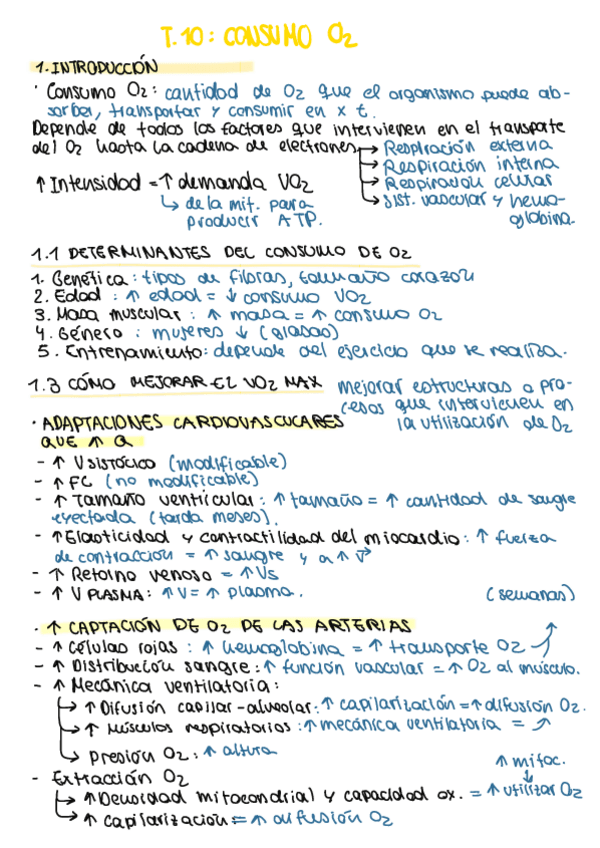 T.10: CONSUMO O2
1. INTRODUCCIÓN
· Consumo O2: cantidad de O2 que el organismo puede ab-
sorber, transportar y consumir en x t.
Depende de todos los factores que intervienen en el transporte
del O2 hasta la cadena de electrones → Respiración externa
→ Respiración interna
→ Respiración celular
→ Sist. vascular y hemo-
globina.
↑ Intensidad = ↑ demanda VO2
↳ de la mit. para
producir ATP.
1.1 DETERMINANTES DEL CONSUMO DE O2
1. Genética: tipos de fibras, tamaño corazón
2. Edad: ↑ edad = ↓ consumo VO2
3. Masa muscular: ↑ masa = ↑ consumo O2
4. Género: mujeres ↓ (grasas)
5. Entrenamiento: depende del ejercicio que se realiza.
1.3 CÓMO MEJORAR EL VO2 MAX mejorar estructuras o pro-
cesos que intervienen en
la utilización de O2
· ADAPTACIONES CARDIOVASCULARES
QUE ↑ Q
- ↑ V SISTÓLICO (modificable)
- ↑ FC (no modificable)
- ↑ Tamaño ventricular: ↑ tamaño = ↑ cantidad de sangre
eyectada (tarda meses).
- ↑ Elasticidad y contractilidad del miocardio: ↑ fuerza
de contracción = ↑ sangre y a ↑ V
- ↑ Retorno venoso = ↑ Vs
- ↑ V PLASMA: ↑ V = ↑ plasma. (semanas)
· ↑ CAPTACIÓN DE O2 DE LAS ARTERIAS
- ↑ Células rojas: ↑ hemoglobina = ↑ transporte O2
- ↑ Distribución sangre: ↑ función vascular = ↑ O2 al músculo.
- ↑ Mecánica ventilatoria:
↳ ↑ Difusión capilar-alveolar: ↑ capilarización = ↑ difusión O2.
↳ ↑ Músculos respiratorios: ↑ mecánica ventilatoria = ↗
↳ Presión O2: ↑ altura
- Extracción O2
↑ mitoc.
↓
↳ ↑ Densidad mitocondrial y capacidad ox. = ↑ utilizar O2
↳ ↑ capilarización = ↑ difusión O2